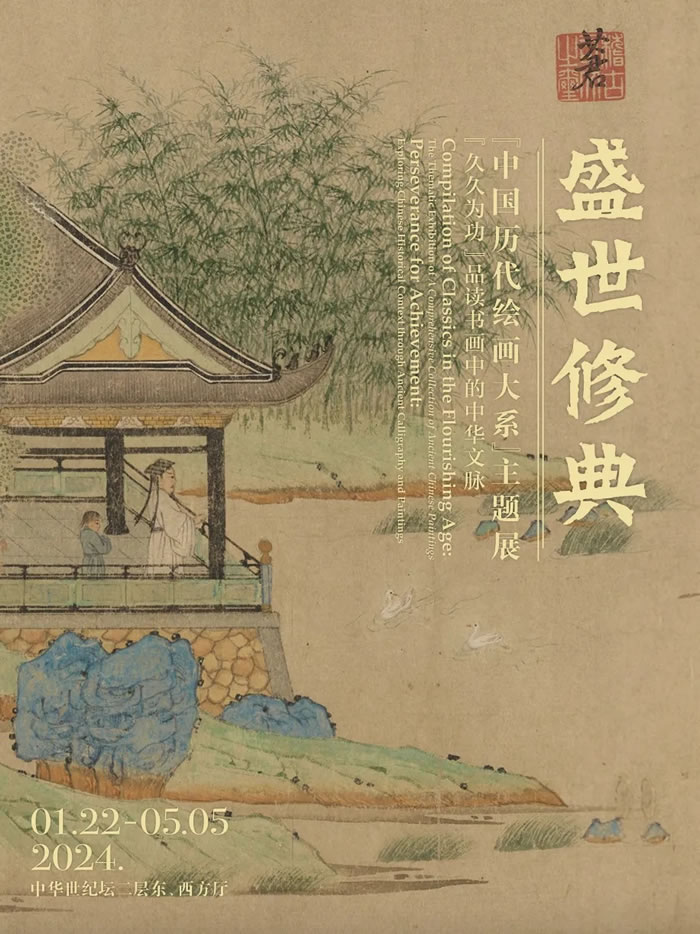 盛世修典
『中国历代绘画大系』主题展
『久久为功』品读书画中的中华文脉
Compilation of Classics in the Flourishing Age:
The Thematic Exhibition of A Comprehensive Collection of Ancient Chinese Paintings
Perseverance for Achievement:
Exploring Chinese Historical Context through Ancient Calligraphy and Paintings
01.22-05.05
2024.
中华世纪坛二层东、西方厅